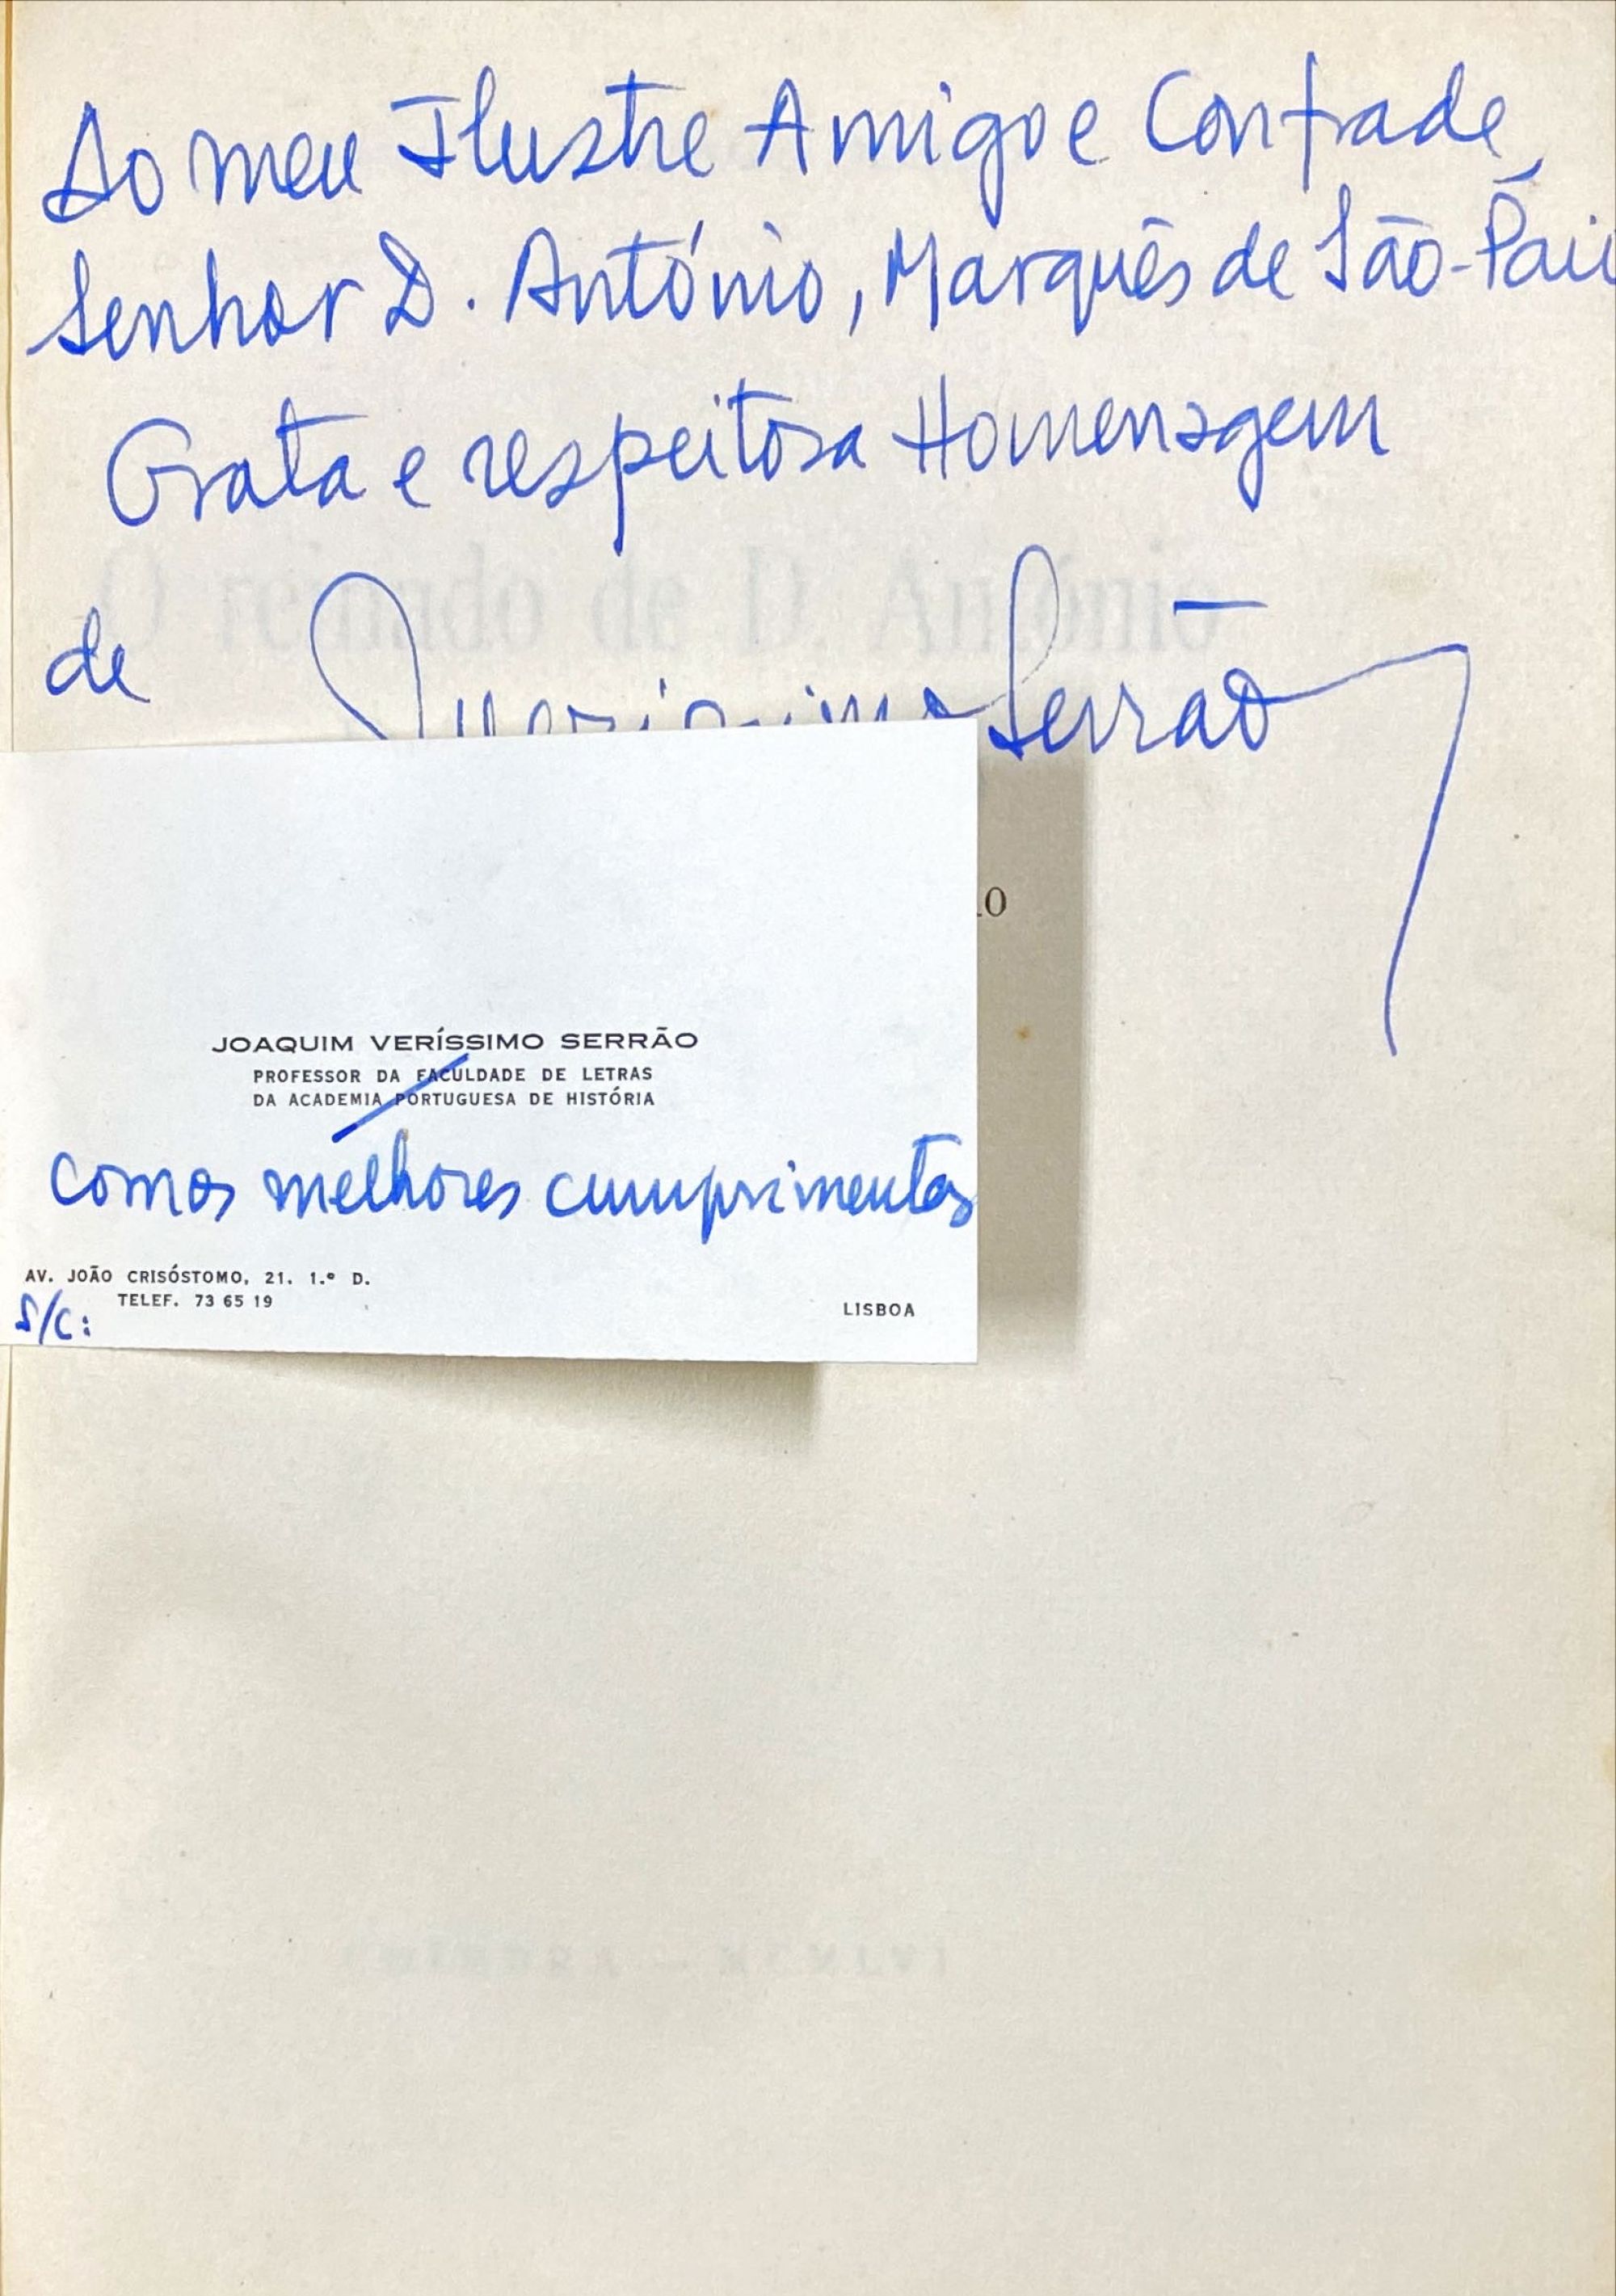 Ao meu Ilustre Amigo e Confrade,
Senhor D. António, Marquês de São-Pai
Grata e respeitosa Homenagem
O reinado de D. António
de Veríssimo Serrão
10
JOAQUIM VERÍSSIMO SERRÃO
PROFESSOR DA FACULDADE DE LETRAS
DA ACADEMIA PORTUGUESA DE HISTÓRIA
com os melhores cumprimentos
AV. JOÃO CRISÓSTOMO, 21. 1.º D.
TELEF. 73 65 19
S/C:
LISBOA
COIMBRA — MCMLVI